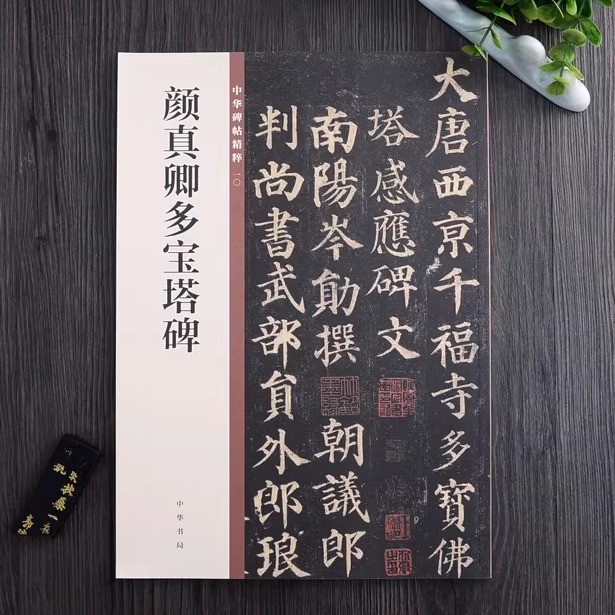 颜真卿多宝塔碑
中华碑帖精粹 一〇
中华书局
大唐西京千福寺多寳佛
塔感應碑文
南陽岑勛撰 朝議郎
判尚書武部員外郎琅